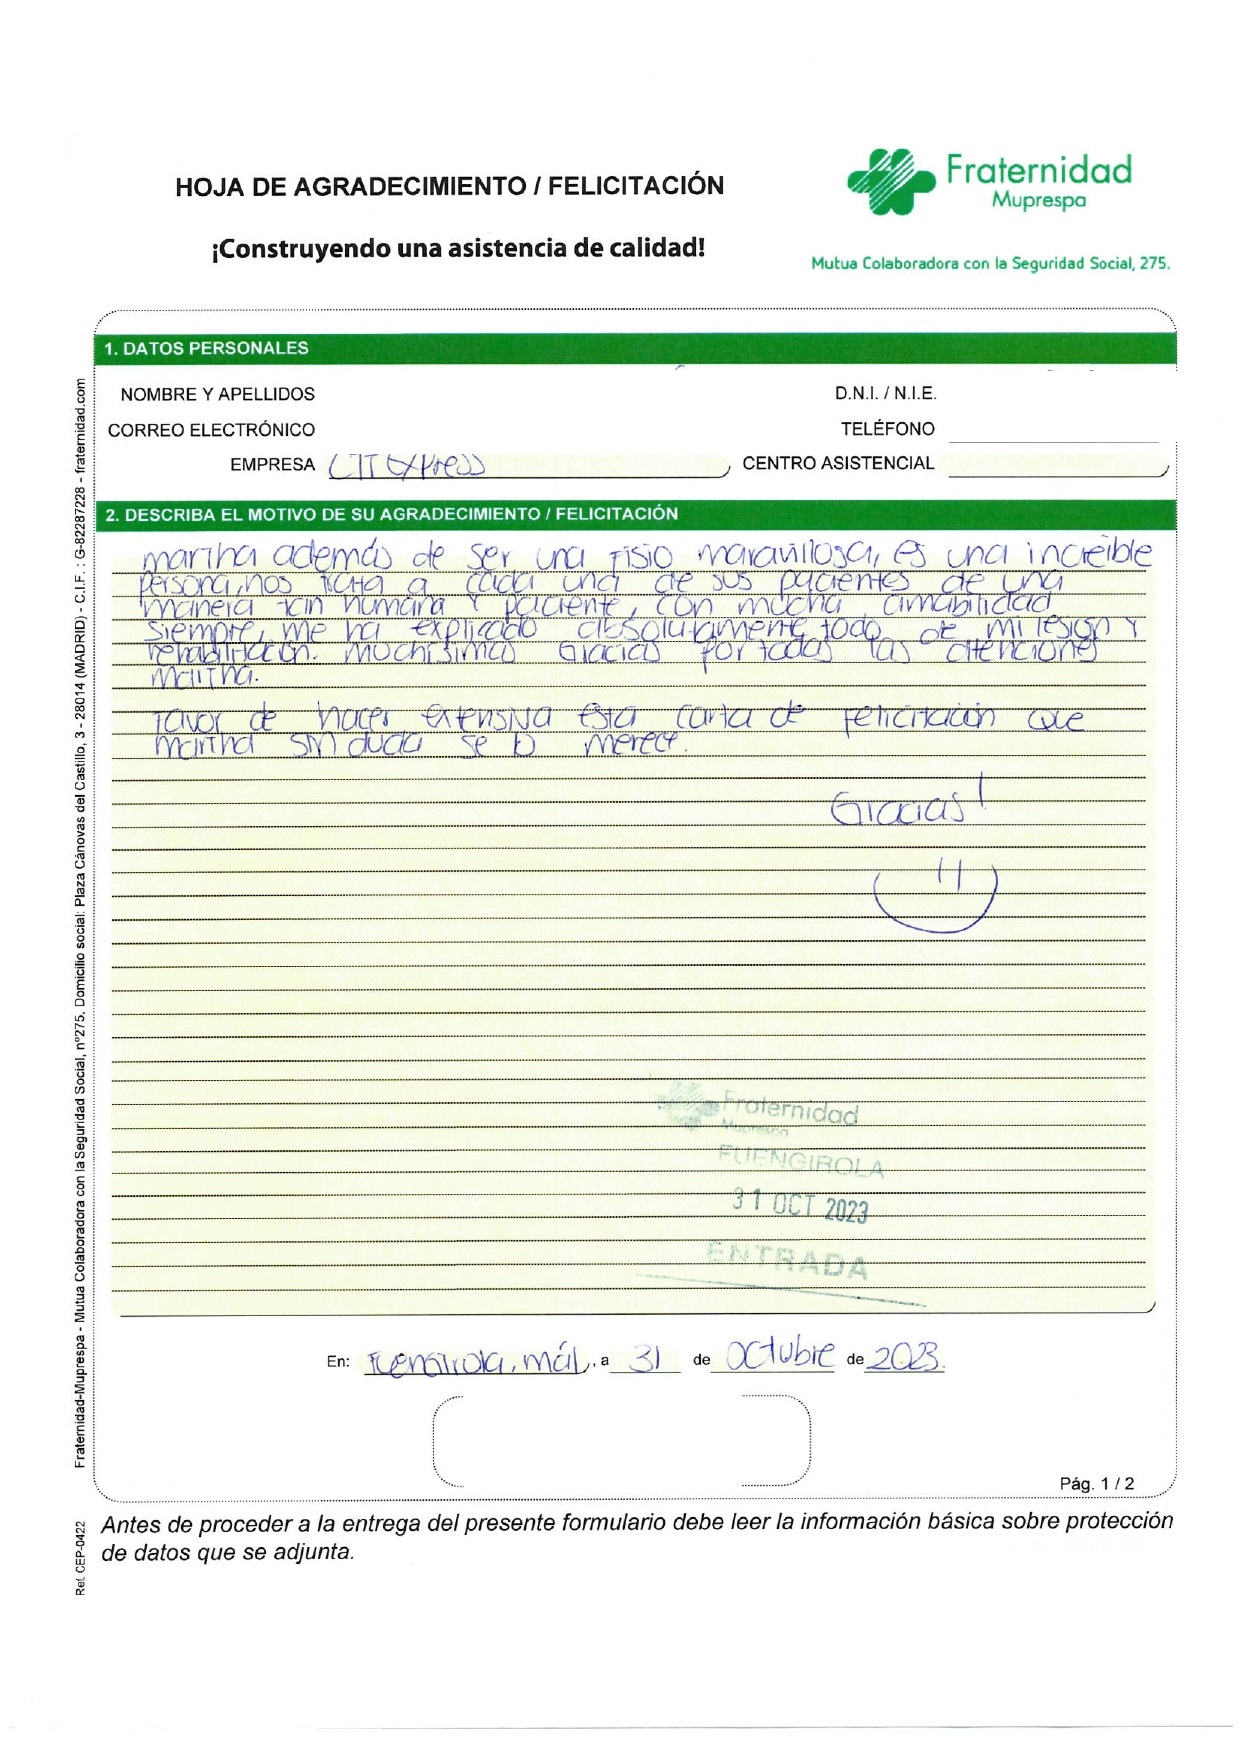 HOJA DE AGRADECIMIENTO / FELICITACIÓN
¡Construyendo una asistencia de calidad!
Fraternidad
Muprespa
Mutua Colaboradora con la Seguridad Social, 275.
1. DATOS PERSONALES
NOMBRE Y APELLIDOS
D.N.I. / N.I.E.
CORREO ELECTRÓNICO
TELÉFONO
EMPRESA CTT Express
CENTRO ASISTENCIAL
2. DESCRIBA EL MOTIVO DE SU AGRADECIMIENTO / FELICITACIÓN
Martha además de ser una fisio maravillosa, es una increíble
persona, nos trata a cada una de sus pacientes de una
manera tan humana y paciente, con mucha amabilidad
siempre, me ha explicado absolutamente todo de mi lesión y
rehabilitación. Muchísimas Gracias por todas las atenciones
Martha.
Favor de hacer extensiva esta carta de felicitación que
Martha sin duda se lo merece.
Gracias!
Fraternidad
Muprespa
FUENGIROLA
31 OCT 2023
ENTRADA
En: Fuengirola, Mál, a 31 de Octubre de 2023.
Pág. 1 / 2
Antes de proceder a la entrega del presente formulario debe leer la información básica sobre protección
de datos que se adjunta.
Fraternidad-Muprespa - Mutua Colaboradora con la Seguridad Social, nº275. Domicilio social: Plaza Cánovas del Castillo, 3 - 28014 (MADRID) - C.I.F. : G-82287228 - fraternidad.com
Ref. CEP-0422